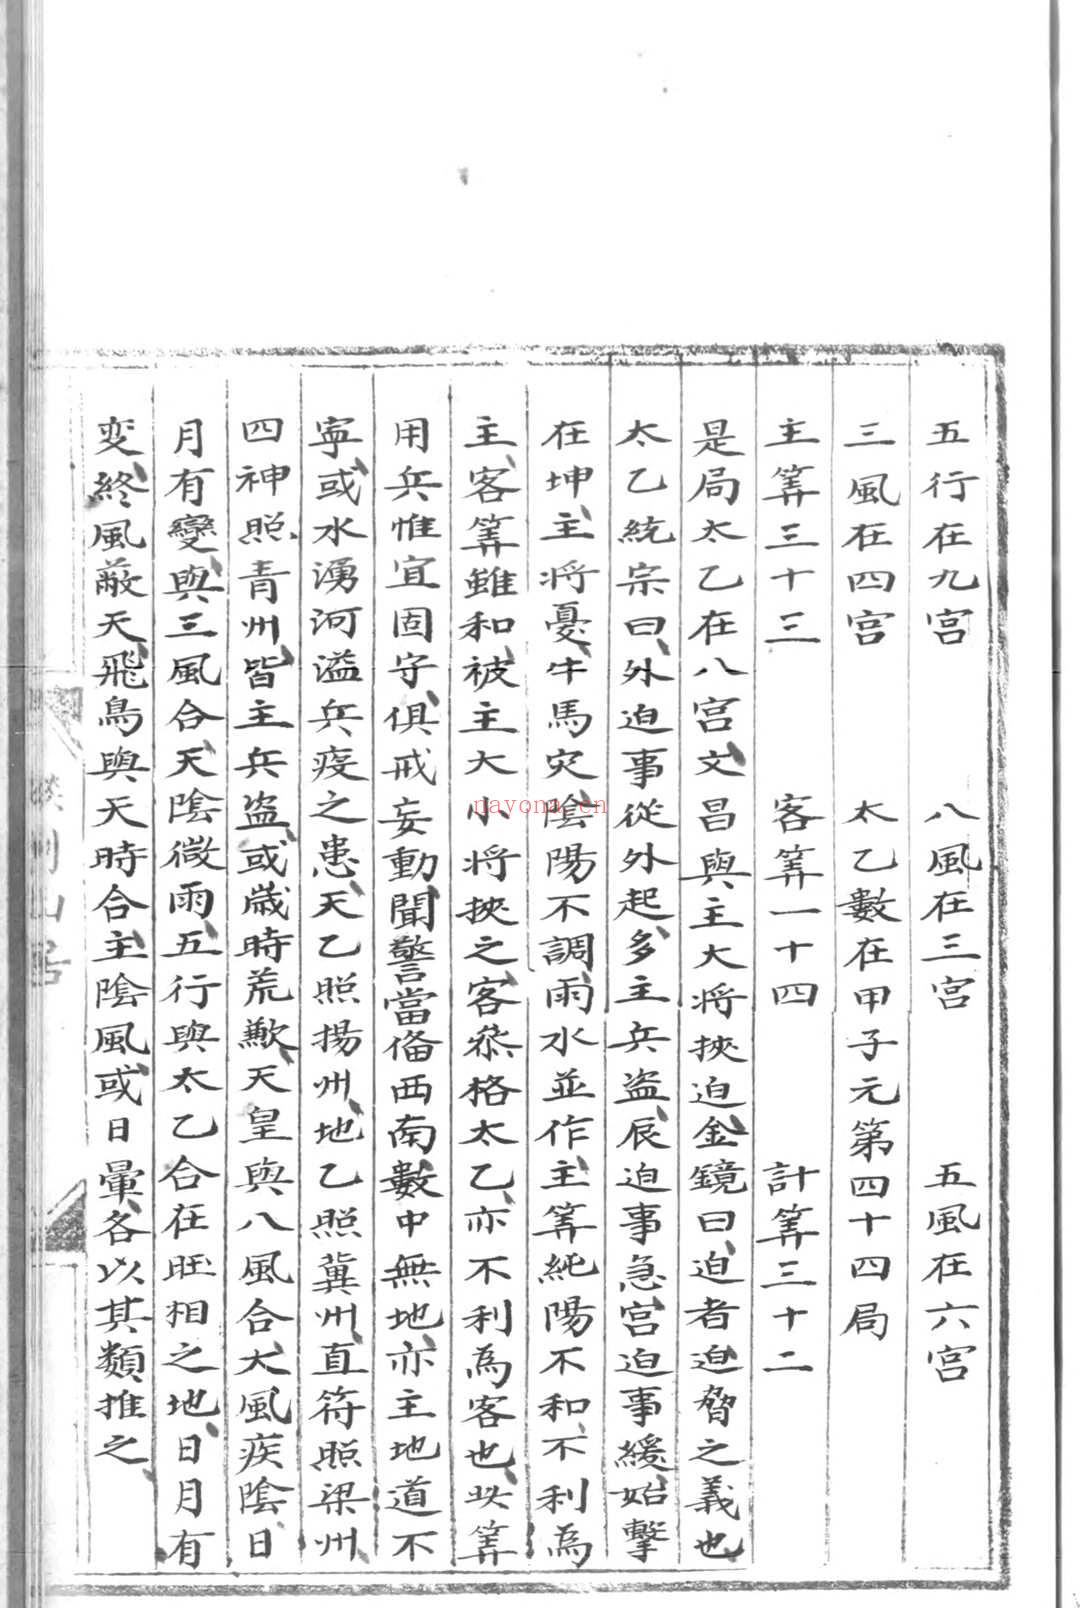 五行在九宫　八風在三宫　五風在六宫
三風在四宫　太乙數在甲子元第四十四局
主筭三十三　客筭一十四　計筭三十二
是局太乙在八宫文昌與主大将挾迫金鏡曰迫者迫脅之義也
太乙統宗曰外迫事從外起多主兵盗辰迫事急宫迫事緩始擊
在坤主将憂牛馬灾陰陽不調雨水並作主筭純陽不和不利為
主客筭雖和被主大小将挾之客叅格太乙亦不利為客也此筭
用兵惟宜固守俱戒妄動聞警當俻西南數中無地亦主地道不
寕或水湧河溢兵疫之患天乙照揚州地乙照冀州直符照梁州
四神照青州皆主兵盗或歲時荒歉天皇與八風合大風疾陰日
月有變與三風合天陰微雨五行與太乙合在旺相之地日月有
変終風蔽天飛鳥與天時合主陰風或日暈各以其類推之
山居
nayona.cn